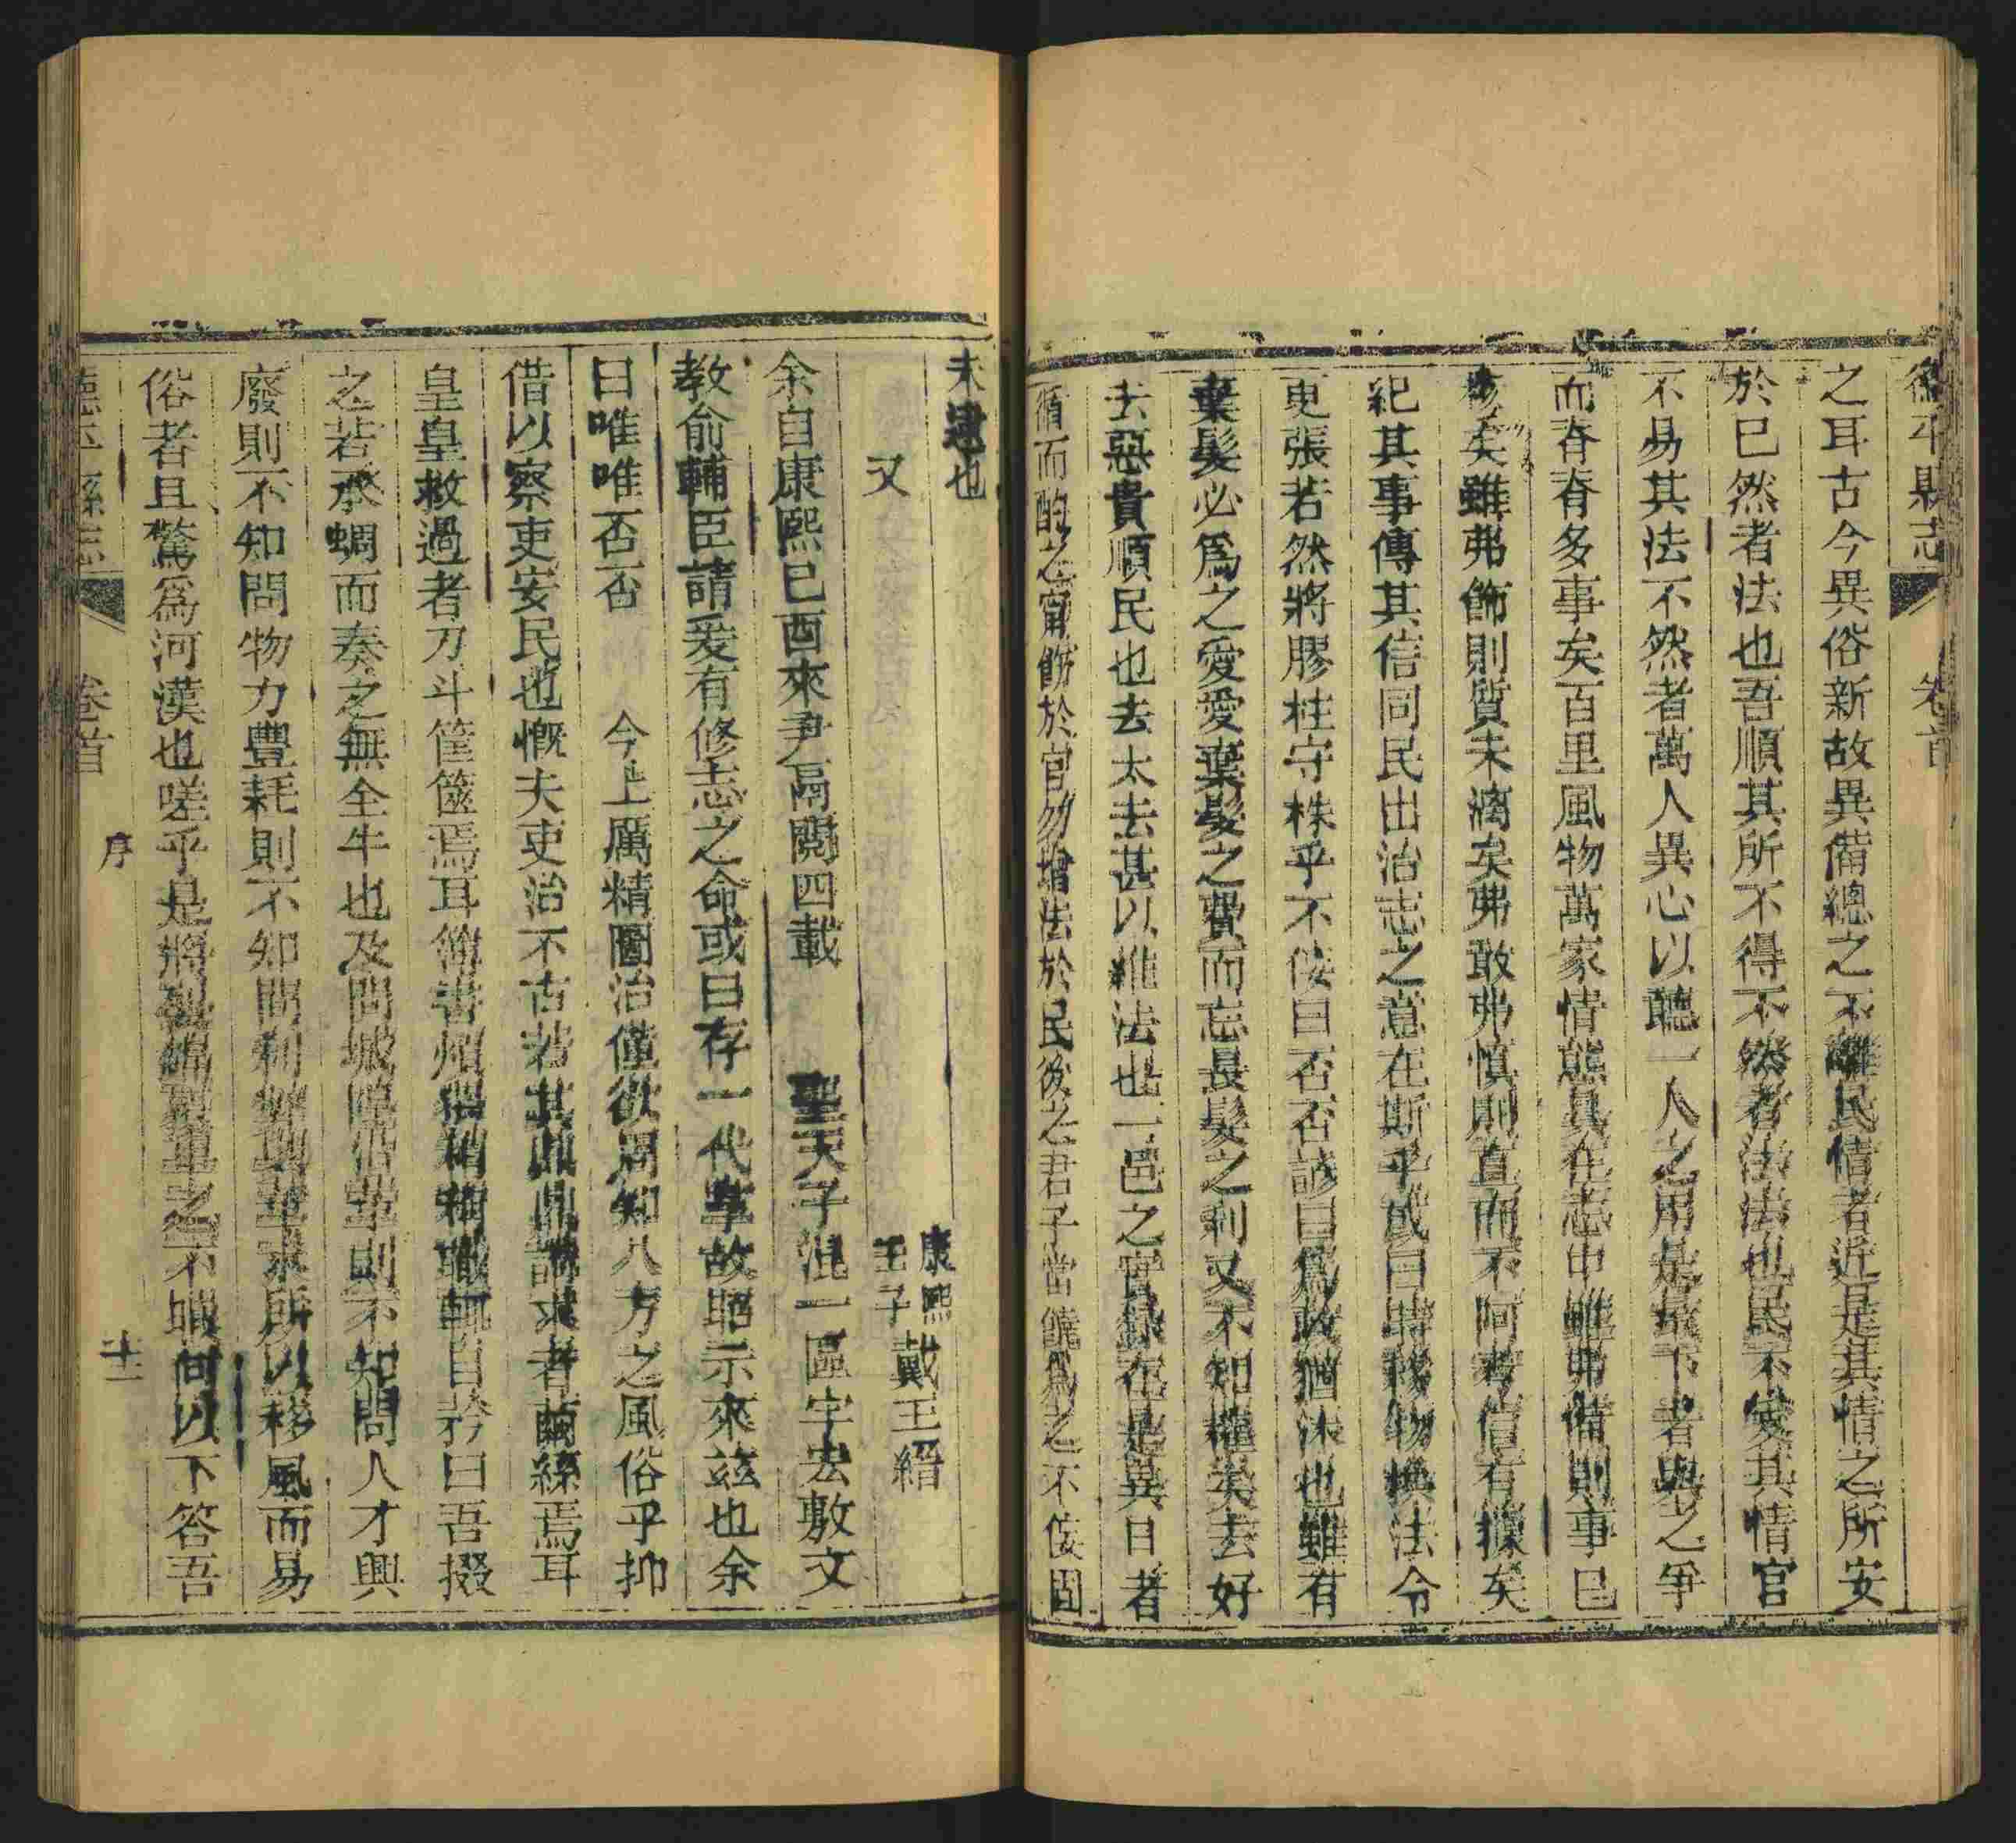 德平縣志
卷首
之耳古今異俗新故異備總之不離民情者近是其情之所安
於已然者法也吾順其所不得不然者法法也民不安其情官
不易其法不然者萬人異心以聽一人之用是最下者與之爭
而脊脊多事矣百里風物萬家情態具在志中雖弗備則事已
核矣雖弗飾則質未漓矣弗敢弗慎則直而不阿考信有據矣
紀其事傳其信同民出治志之意在斯乎或曰時移物換法令
更張若然將膠柱守株乎不佞曰否否諺曰為政猶沐也雖有
棄髮必為之愛愛棄髮之費而忘長髮之利又不知權矣去好
去惡貴順民也去太去甚以維法也一邑之實錄在是異日者
循而酌之甯飭於官勿增法於民後之君子當饒為之不佞固
未逮也
又
康熙壬子戴王縉
余自康熙己酉來尹鬲閱四載 聖天子混一區宇宏敷文
教俞輔臣請爰有修志之命或曰存一代掌故昭示來茲也余
曰唯唯否否 今上厲精圖治僅欲周知八方之風俗乎抑
借以察吏安民也慨夫吏治不古若其鼎鼎誅求者繭絲焉耳
皇皇救過者刀斗筐篋焉耳簿書焰猥稍稍職輒自矜曰吾掇
之若承蜩而奏之無全牛也及問城隍沿革則不知問人才興
廢則不知問物力豐耗則不知問利弊與革求所以移風而易
俗者且驚為河漢也嗟乎是將製錦
之不
何以下答吾
德平縣志
卷首
序
十二